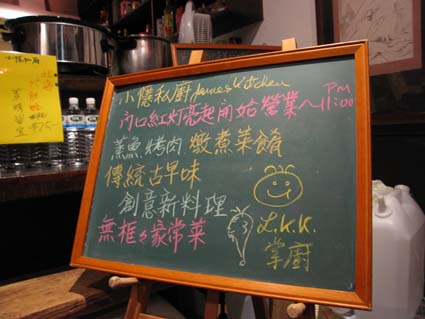 小隱私廚 James Kitchen
門口紅灯亮起開始營業~PM 11:00
蒸魚 烤肉 燉煮菜餚
傳統古早味
創意新料理
無框ㄉ家常菜
L.K.K.
掌廚
小隱私廚